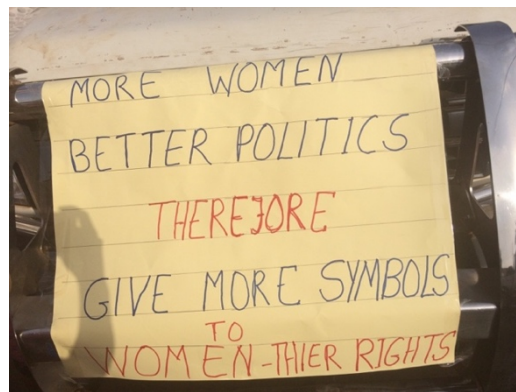 MORE WOMEN
BETTER POLITICS
THEREFORE
GIVE MORE SYMBOLS
TO
WOMEN-THIER RIGHTS